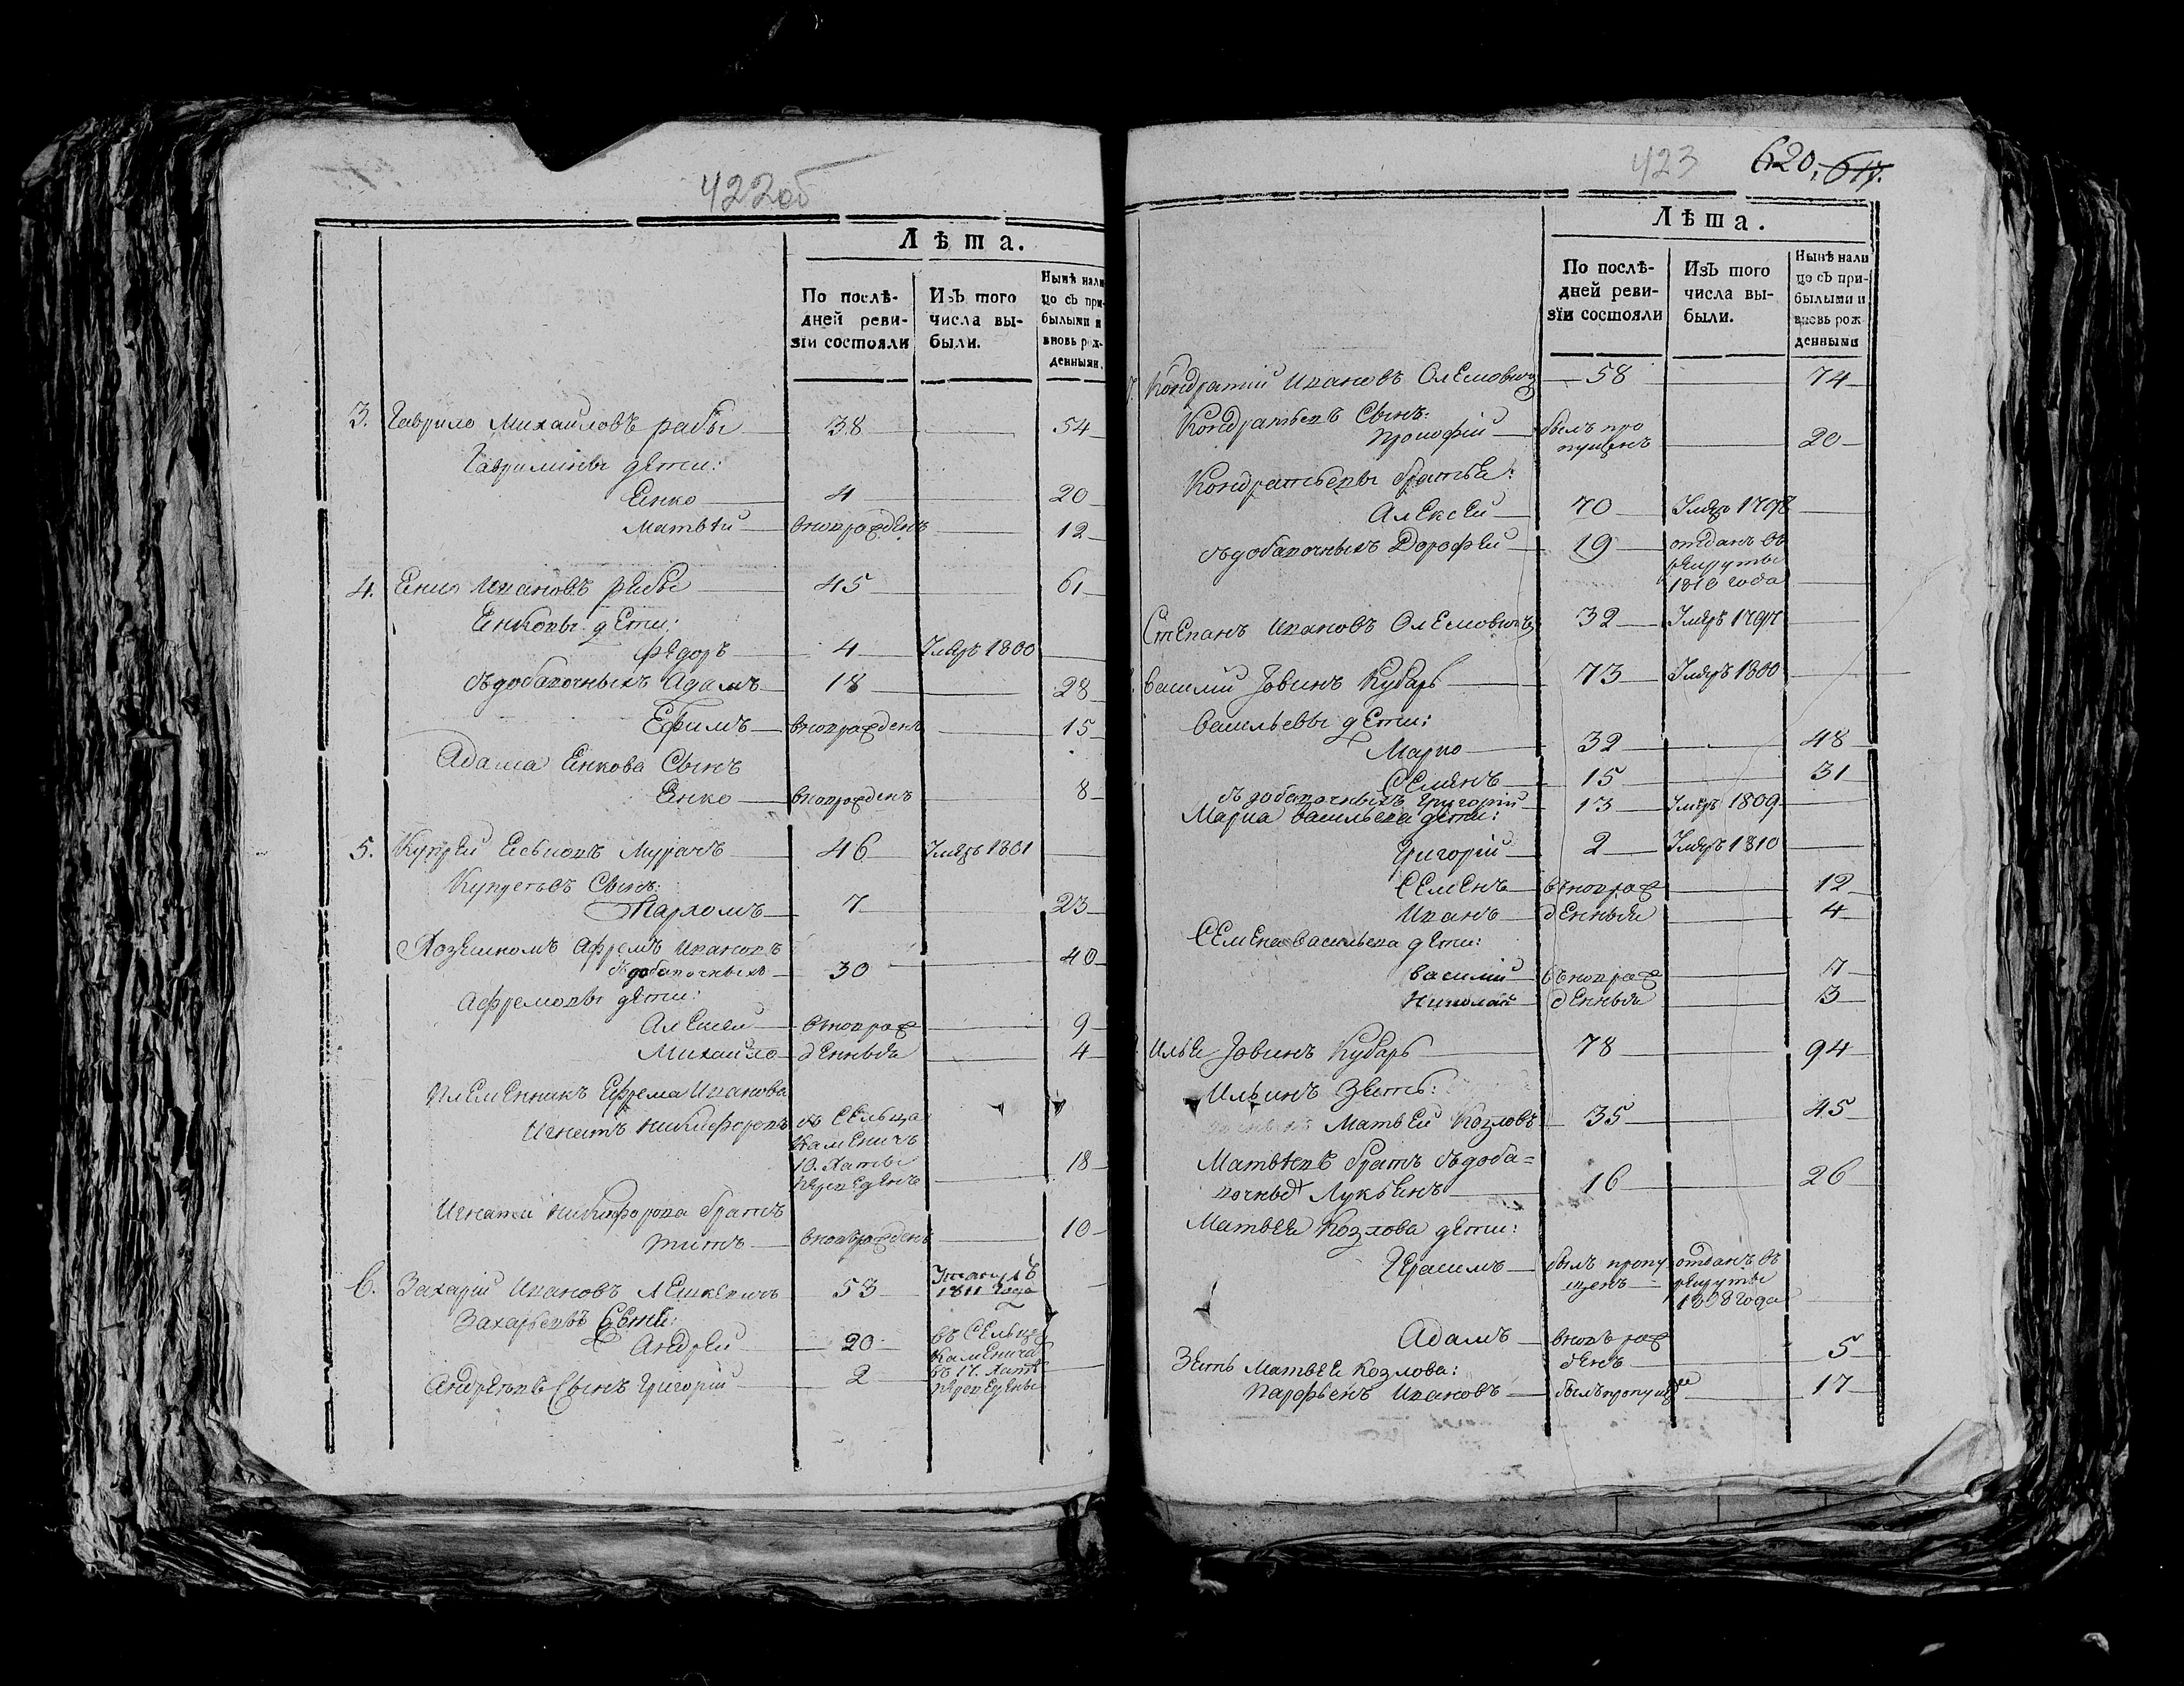 422об
Лѣта.
По послѣ-
дней реви-
зїи состояли
Изъ того
числа вы-
были.
Нынѣ нали
цо съ при-
былыми и
вновь рож-
денными.
3. Гаврило Михайловъ рабы 38 54
Гавриловы дети:
Енко 4 20
Матвѣй вновражденъ 12
4. Енко Ивановъ рабы 45 61
Енковы дети:
Федоръ 4 Умеръ 1800
съдобавочныхъ Адамъ 18 28
Ефимъ вновражденъ 15
Адама Енкова Сынъ
Енко вновражденъ 8
5. Купрей Ивановъ 46 Умеръ 1801
Купреевъ Сынъ:
Пархомъ 7 23
Хозяиномъ Афремъ Ивановъ
съдобавочныхъ 30 40
Афремовы дети:
Алексей вновраж 9
Михайло денные 4
Племенникъ Ефрема Иванова
Игнатъ Никифоровъ изъ Сельца
Каменичъ
10. Хаты
переведенъ 18
Игнатей Никифорова братъ
Титъ вновражденъ 10
6. Захарїй Ивановъ 53
1811 года
Захарьевъ Сынъ:
Андрей 20 въ Сельцо
Каменича
въ 17. Хату
переведены
Андреевъ Сынъ Григорїй 2
423 620. 617.
Лѣта.
По послѣ-
дней реви-
зїи состояли
Изъ того
числа вы-
были.
Нынѣ нали
цо съ при-
былыми и
вновь рож
денными
7. Кондратий Ивановъ Олемовичъ 58 74
Кондратьевъ Сынъ:
Прокофїй былъ про
пущенъ 20
Кондратьевы братья:
Алексей 70 Умеръ 1798
съдобавочныхъ Дорофей 19 отданъ въ
рекруты
1810 года
Степанъ Ивановъ Олемовичъ 32 Умеръ 1797
Василїй Іовинъ Кубарь 73 Умеръ 1800
Васильевы дети:
Марко 32 48
Семенъ 15 31
съдобавочныхъ Григорїй 13 Умеръ 1809
Марка Васильева дети:
Григорїй 2 Умеръ 1810
Семенъ вновраж 12
Иванъ денные 4
Семена Васильева дети:
Василїй вновраж 7
Николай денные 3
Илья Іовинъ Кубарь 78 94
Ильинъ Зеть:
Матвей Козловъ 35 45
Матвеевъ братъ съдоба=
вочные Лукьенъ 16 26
Матвея Козлова дети:
Герасимъ былъ пропу
щенъ отданъ въ
рекруты
1808 года
Адамъ вновъ раж
денъ 5
Зеть Матвея Козлова:
Парфенъ Ивановъ былъ пропуще 17